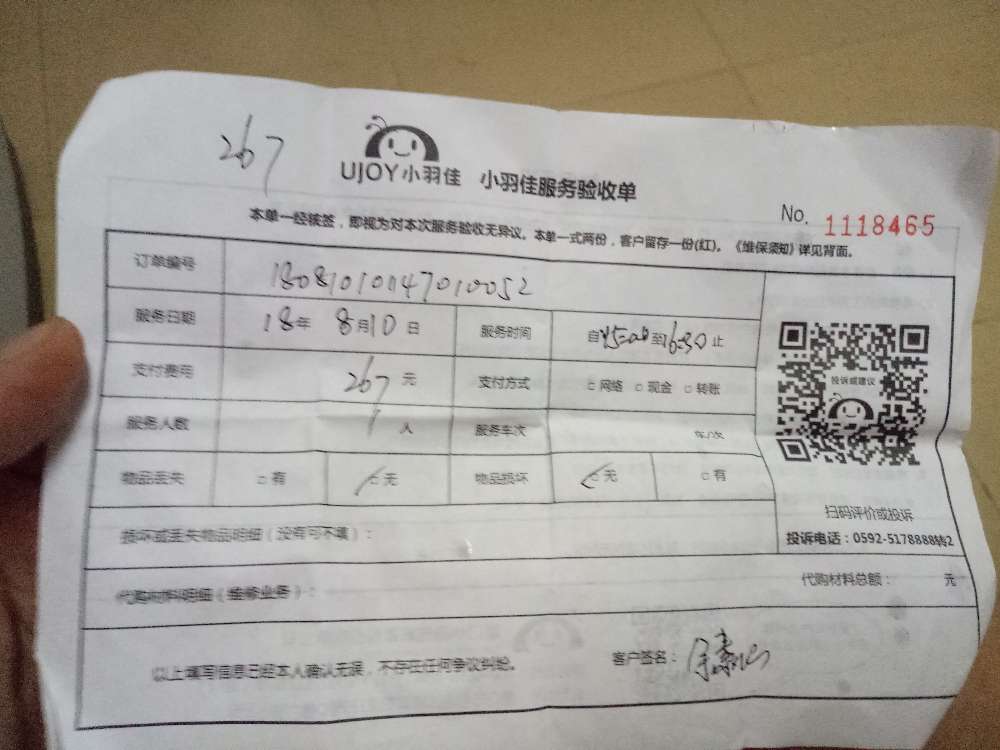 267
UJOY小羽佳 小羽佳服务验收单
No. 1118465
本单一经核签,即视为对本次服务验收无异议。本单一式两份,客户留存一份(红)。《维保须知》详见背面。
订单编号 180810101147010052
服务日期 18年 8月10日 服务时间 自15:00至16:30止
支付费用 267元 支付方式 □网络 □现金 □转账
服务人数 1人 服务车次 车/次
物品丢失 □有 □无 物品损坏 □无 □有
投诉或建议
扫码评价或投诉
投诉电话:0592-5178888转2
损坏或丢失物品明细(没有可不填):
代购材料明细(维修业务): 代购材料总额: 元
以上填写信息已经本人确认无误,不存在任何争议纠纷。 客户签名: